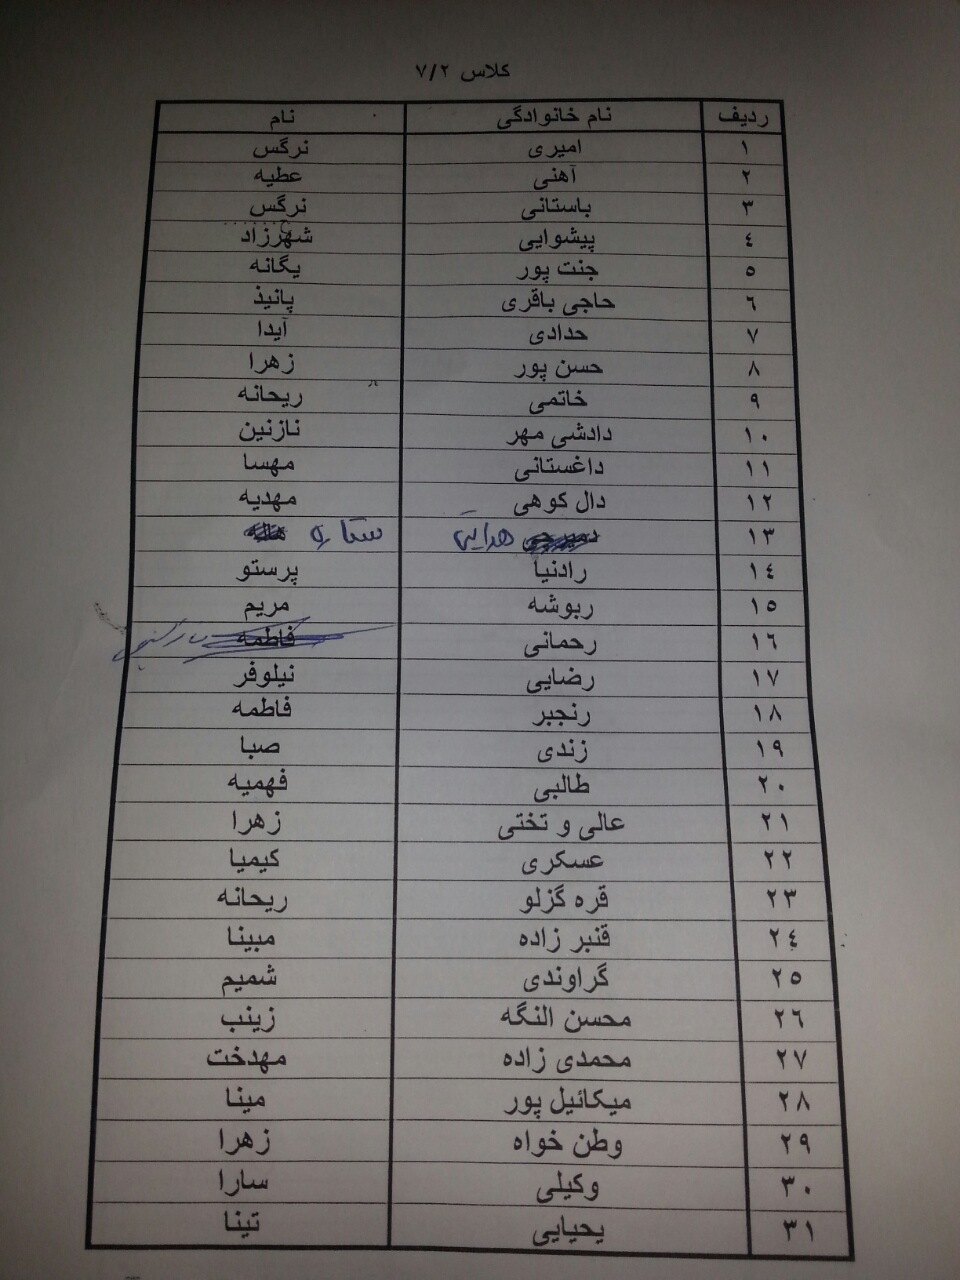 کلاس ۷/۲
ردیف نام خانوادگی نام
۱ امیری نرگس
۲ آهنی عطیه
۳ باستانی نرگس
٤ پیشوایی شهرزاد
۵ جنت پور یگانه
٦ حاجی باقری پانیذ
۷ حدادی آیدا
۸ حسن پور زهرا
۹ خاتمی ریحانه
۱۰ دادشی مهر نازنین
۱۱ داغستانی مهسا
۱۲ دال کوهی مهدیه
۱۳ هدایتی ستاره
۱٤ رادنیا پرستو
۱۵ ربوشه مریم
۱٦ رحمانی فاطمه
۱۷ رضایی نیلوفر
۱۸ رنجبر فاطمه
۱۹ زندی صبا
۲۰ طالبی فهمیه
۲۱ عالی و تختی زهرا
۲۲ عسکری کیمیا
۲۳ قره گزلو ریحانه
۲٤ قنبر زاده مبینا
۲۵ گراوندی شمیم
۲٦ محسن النگه زینب
۲۷ محمدی زاده مهدخت
۲۸ میکائیل پور مینا
۲۹ وطن خواه زهرا
۳۰ وکیلی سارا
۳۱ یحیایی تینا